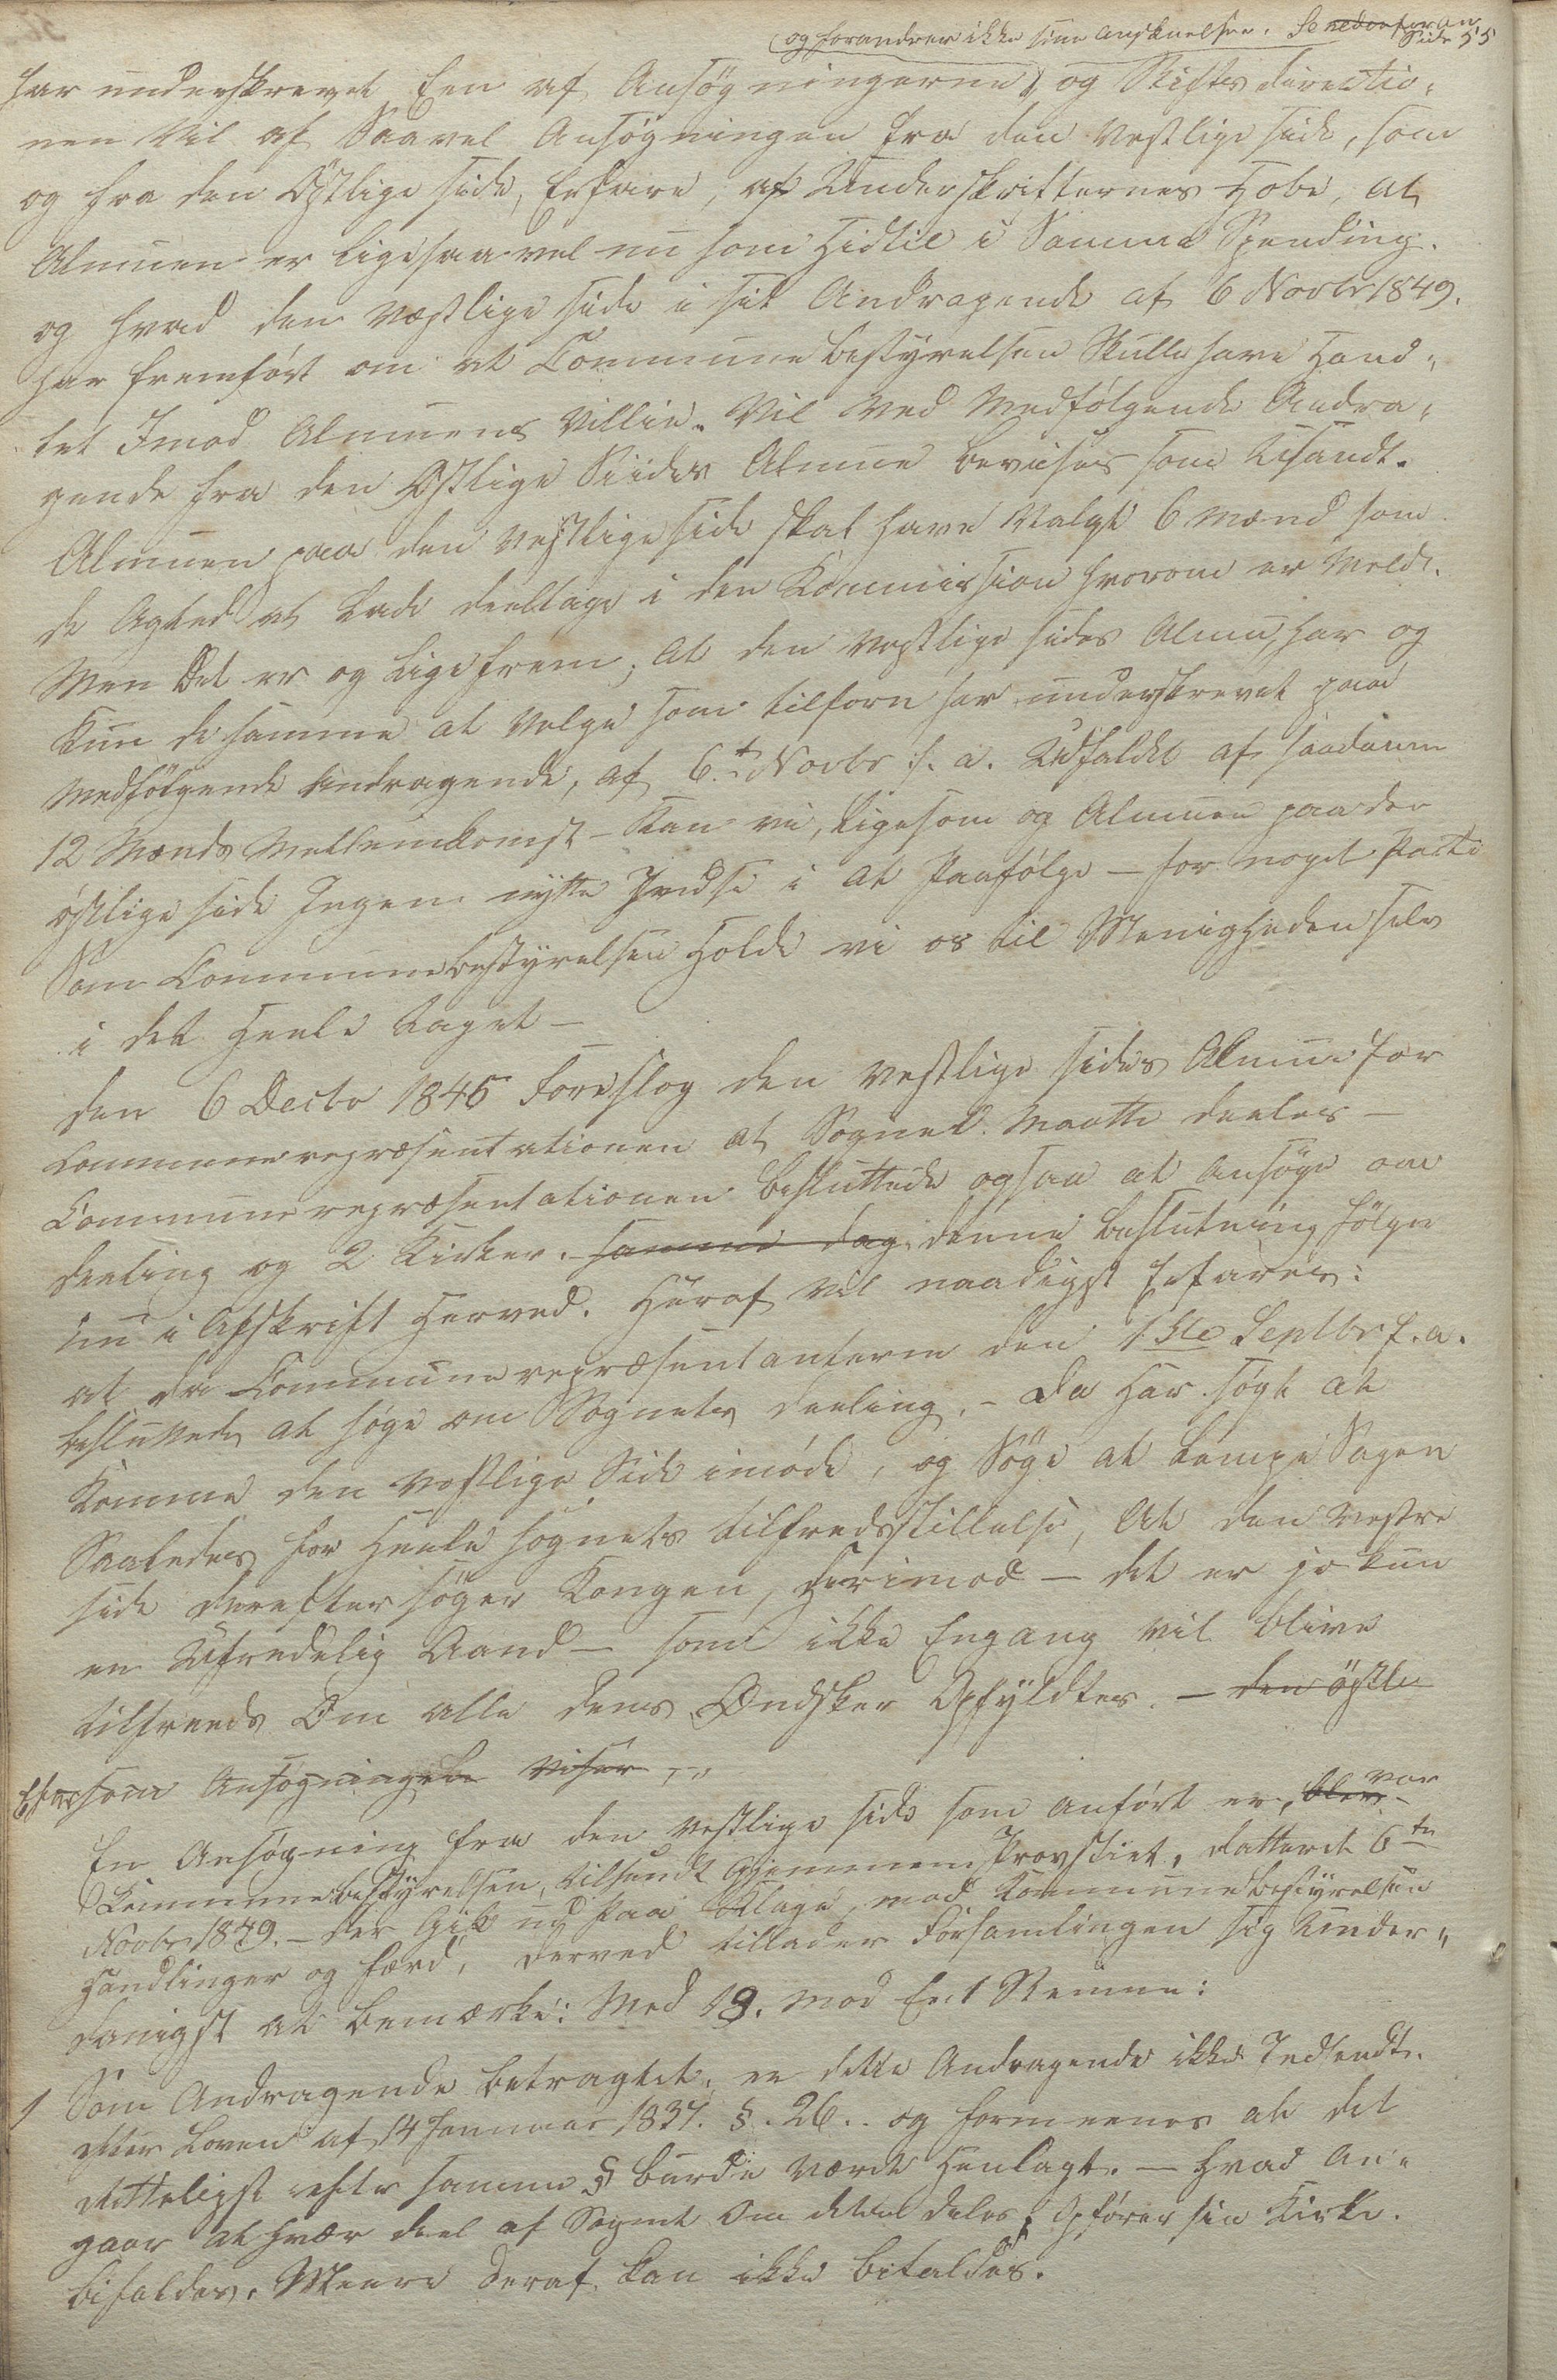 og forandrer ikke sine Anskuelser. Se nedenfor an
Side 55
har underskrevet Een af Ansøgningerne, og Stiftsdirectio-
nen Vil af Saavel Ansøgningen fra den Vestlige side, som
og fra den Østlige side, Erfare af Underskrifternes Hobe, at
Almuen er ligesaavel nu som Hidtil i Samme Spending.
og hvad den Vestlige side i sit Andragende af 6 Novbr 1849.
har fremført om at Commune bestyrelsen Skulle have Hand-
let Imod Almuens Villie. Vil Ved Medfølgende Andra-
gende fra den Østlige Siides Almue bevises som Usandt.
Almuen paa den Vestlige side skal have Valgt 6 Mænd som
de Agted at Lade deeltage i den Kommission hvorom er Meldt.
Men Det er og ligefrem; At den Vestlige sides Almue, har og
Kun de samme at Velge som tilforn har underskrevet paa
Medfølgende Andragende, af 6.t Novbr f. a. Udfaldet af saadann
12 Mænds Mellemkomst - Kan vi, ligesom og Almuen paa den
østlige side Ingen nytte Indse i At Paafølge - for noget Parti
Som Communebestyrelsen Holde vi os til Menigheden selv
i det Heele taget -
den 6 Decbr 1845 Foreslog den Vestlige sides Almue for
Communerepræsentationen at Sognet Maatte deeles -
Communerepræsentationen besluttede ogsaa at Ansøge om
deeling og 2 Kirker. samme dag. denne beslutning følger
nu i Afskrift Herved. Heraf vil naadigst Erfares:
at da Communerepræsentanterne den 1ste Septbr f. a.
besluttede at søge om Sognets deeling, - da Har søgt at
Komme den Vestlige Side imøde, og Søge at Lempe Sagen
Saaledes for Heele sognets tilfredsstillelse, At den Vestre
side derefter søger Kongen, Herimod - det er jo kun
en Ufredelig Aand - som ikke Engang vil blive
tilfreeds Om alle dens Ønsker Opfyldtes. - den østle
Eftersom Ansøgningen Viser -,,
En Ansøgning fra den Vestlige side som anført er, blev var
Kommunebestyrelsen, tilsendt Gjennem Provstiet, datteret 6te
Novbr 1849. - der Gik ud paa Klage, mod Kommunebestyrelsen
Handlinger og færd, derved tillader Forsamlingen sig Under-
danigst at bemærke: Med 19. mod En 1 Stemme:
1 Som Andragende betragtet, er dette Andragende ikke Indsendt.
efter Loven af 14 Januar 1837. §. 26.. og formeenes at det
retteligst efter samme § burde være Henlagt. - hvad An-
gaar at hver deel af Sognet Om det deles, Opfører sin Kirke.
bifaldes. Meere deraf kan ikke bifaldes.